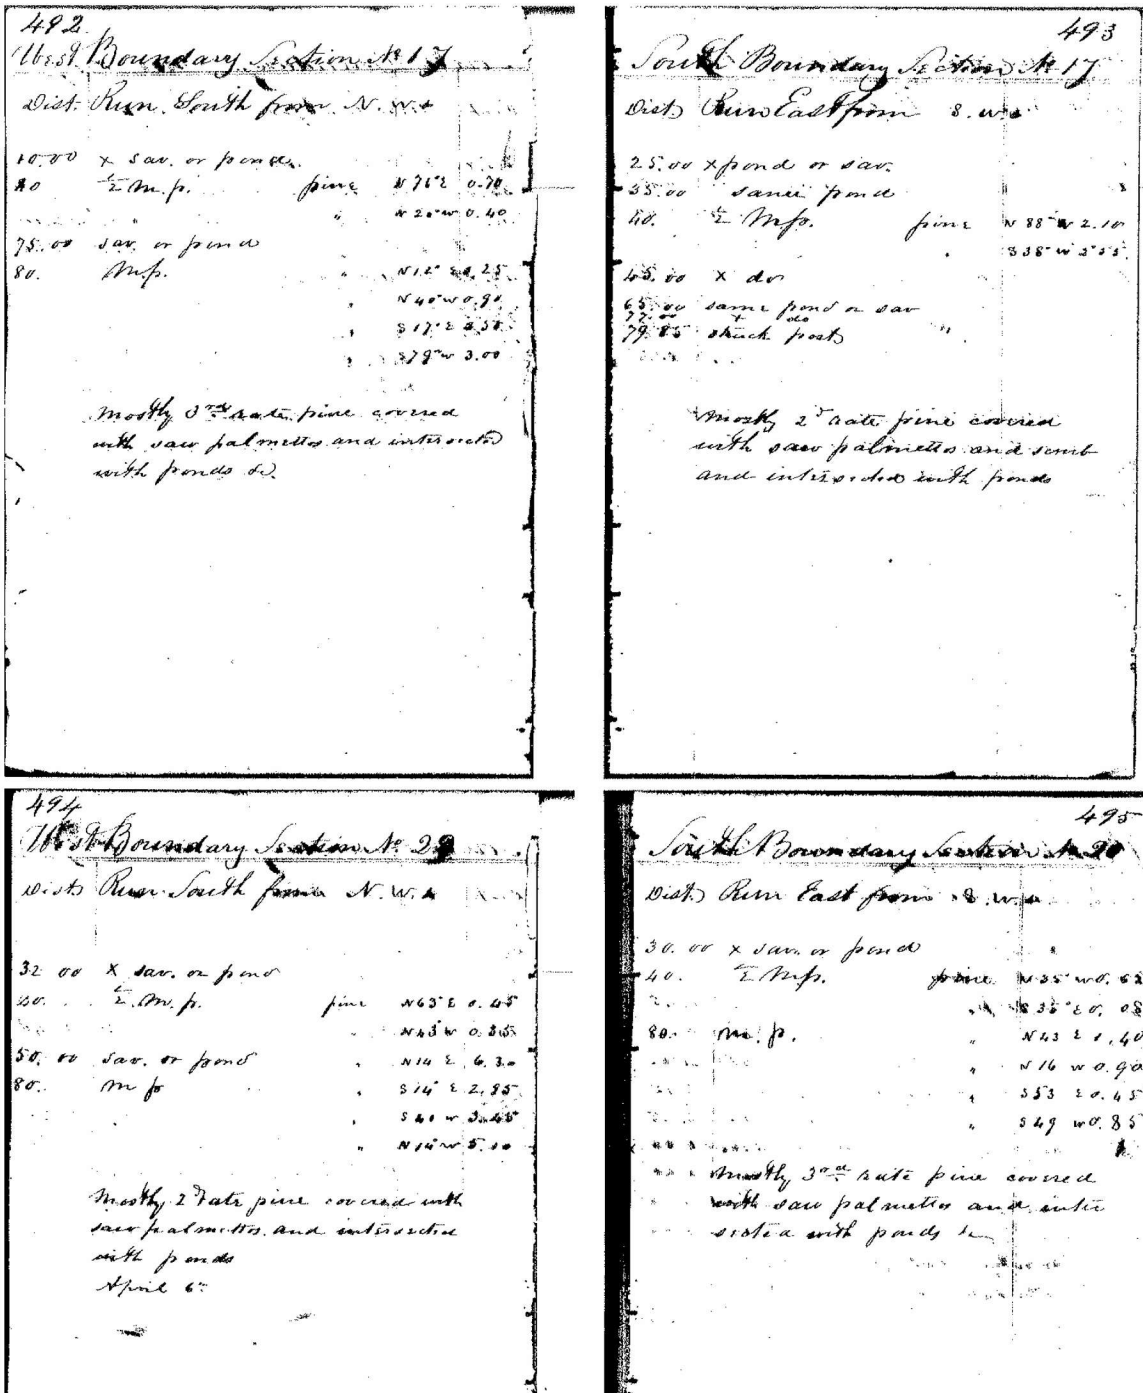 492
West Boundary Section No 17
Dist. Run South from N.W.
10.00 x sav. or pond.
40 ½ M.p. pine N 76 E 0.70
" N 20 W 0.40
75.00 sav. or pond
80. M.p. " N 12 E 0.25
" N 40 W 0.90
" S 17 E 2.50
" S 79 W 3.00
Mostly 3rd rate pine covered
with saw palmettos and intersected
with ponds &c.
493
South Boundary Section No 17
Dist. Run East from S.W.
25.00 x pond or sav.
35.00 same pond
40. ½ M.p. pine N 88 W 2.10
" S 38 W 2.55
45.00 x do
65.00 same pond or sav
77.00 x do
79.85 struck post "
Mostly 2d rate pine covered
with saw palmettos and scrub
and intersected with ponds
494
West Boundary Section No 29
Dist. Run South from N.W.
32 00 x sav. or pond
40. ½ M.p. pine N 65 E 0.45
" N 43 W 0.35
50.00 sav. or pond " N 14 E 6.30
80. M p " S 14 E 2.85
" S 41 W 3.45
" N 14 W 5.10
Mostly 2 rate pine covered with
saw palmettos and intersected
with ponds
April 6th
495
South Boundary Section No 20
Dist. Run East from S.W.
30.00 x sav. or pond
40. ½ M.p. pine N 35 W 0.62
" S 35 E 0.08
80. M.p. " N 43 E 1.40
" N 16 W 0.90
" S 53 E 0.45
" S 49 W 0.85
Mostly 3rd rate pine covered
with saw palmettos and inter
sected with ponds &c